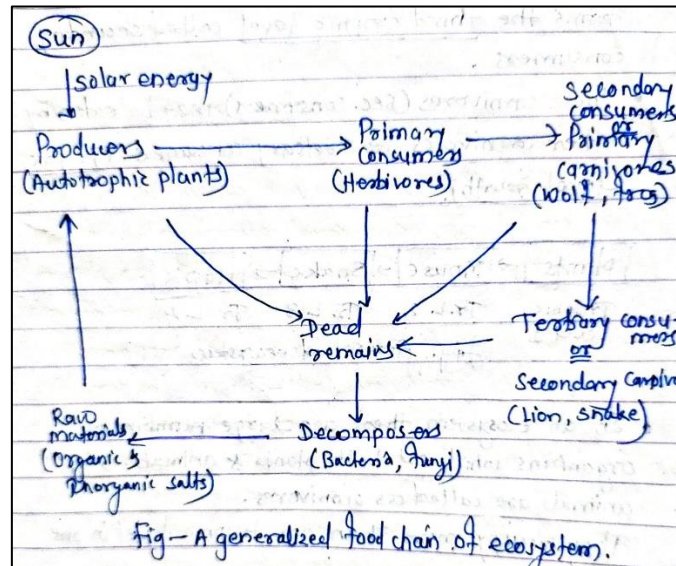 Sun
solar energy
Producers
(Autotrophic plants)
Primary
consumers
(Herbivores)
Secondary
consumers
or
Primary
carnivores
(Wolf, frog)
Dead
remains
Tertiary consu-
mers
or
Secondary Carniv
(Lion, snake)
Decomposers
(Bacteria, fungi)
Raw
materials
(Organic &
Inorganic salts)
Fig - A generalized food chain of ecosystem.